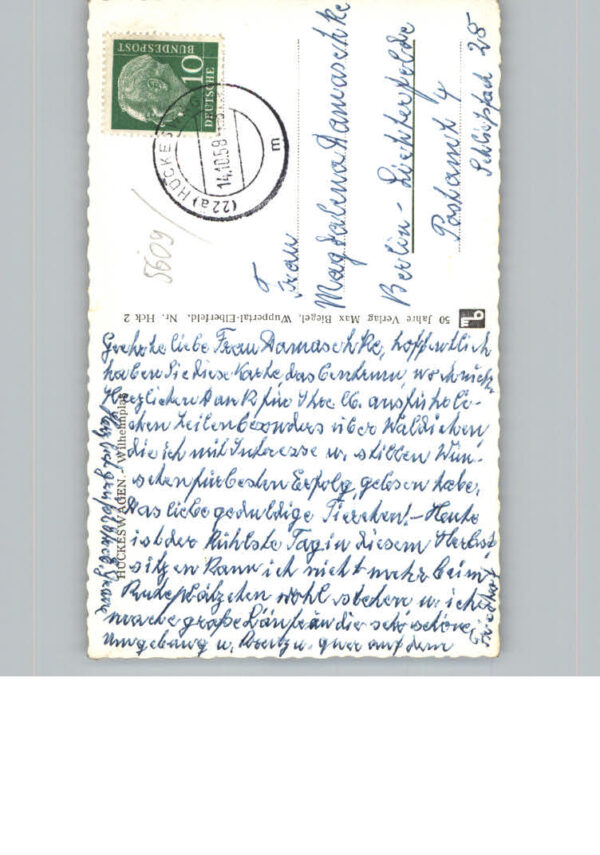 DEUTSCHE
BUNDESPOST
10
(22a) HÜCKESW
14.10.58
m
5609
Frau
Magdalena Damaschke
Berlin-Lichterfelde
Postamt 4
Schließfach 28
50 Jahre Verlag Max Biegel, Wuppertal-Elberfeld. Nr. Hck 2
mb
HÜCKESWAGEN - Wilhelmplatz
liebe Frau Damaschke, hoffentlich
haben Sie diese Karte das Centrum, noch nicht
Herzlichen Dank für Ihre lb. ausführli-
chen Zeilen besonders über Waldichen
die ich mit Interesse u. stillen Wün-
schen für besten Erfolg, gelesen habe.
Das liebe geduldige Tierchen! - Heute
ist der kühlste Tag in diesem Herbst
sitzen kann ich nicht mehr beim
Ruheplätzchen wohl stehen u. ich
mache große Läufe in die schöne
Umgebung u. kreuz u. quer auf dem
Friedhof